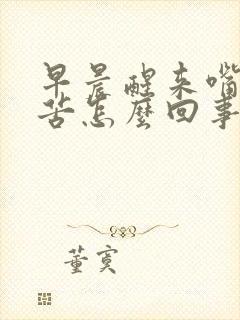 早晨醒来嘴
苦怎麼回事
董寞